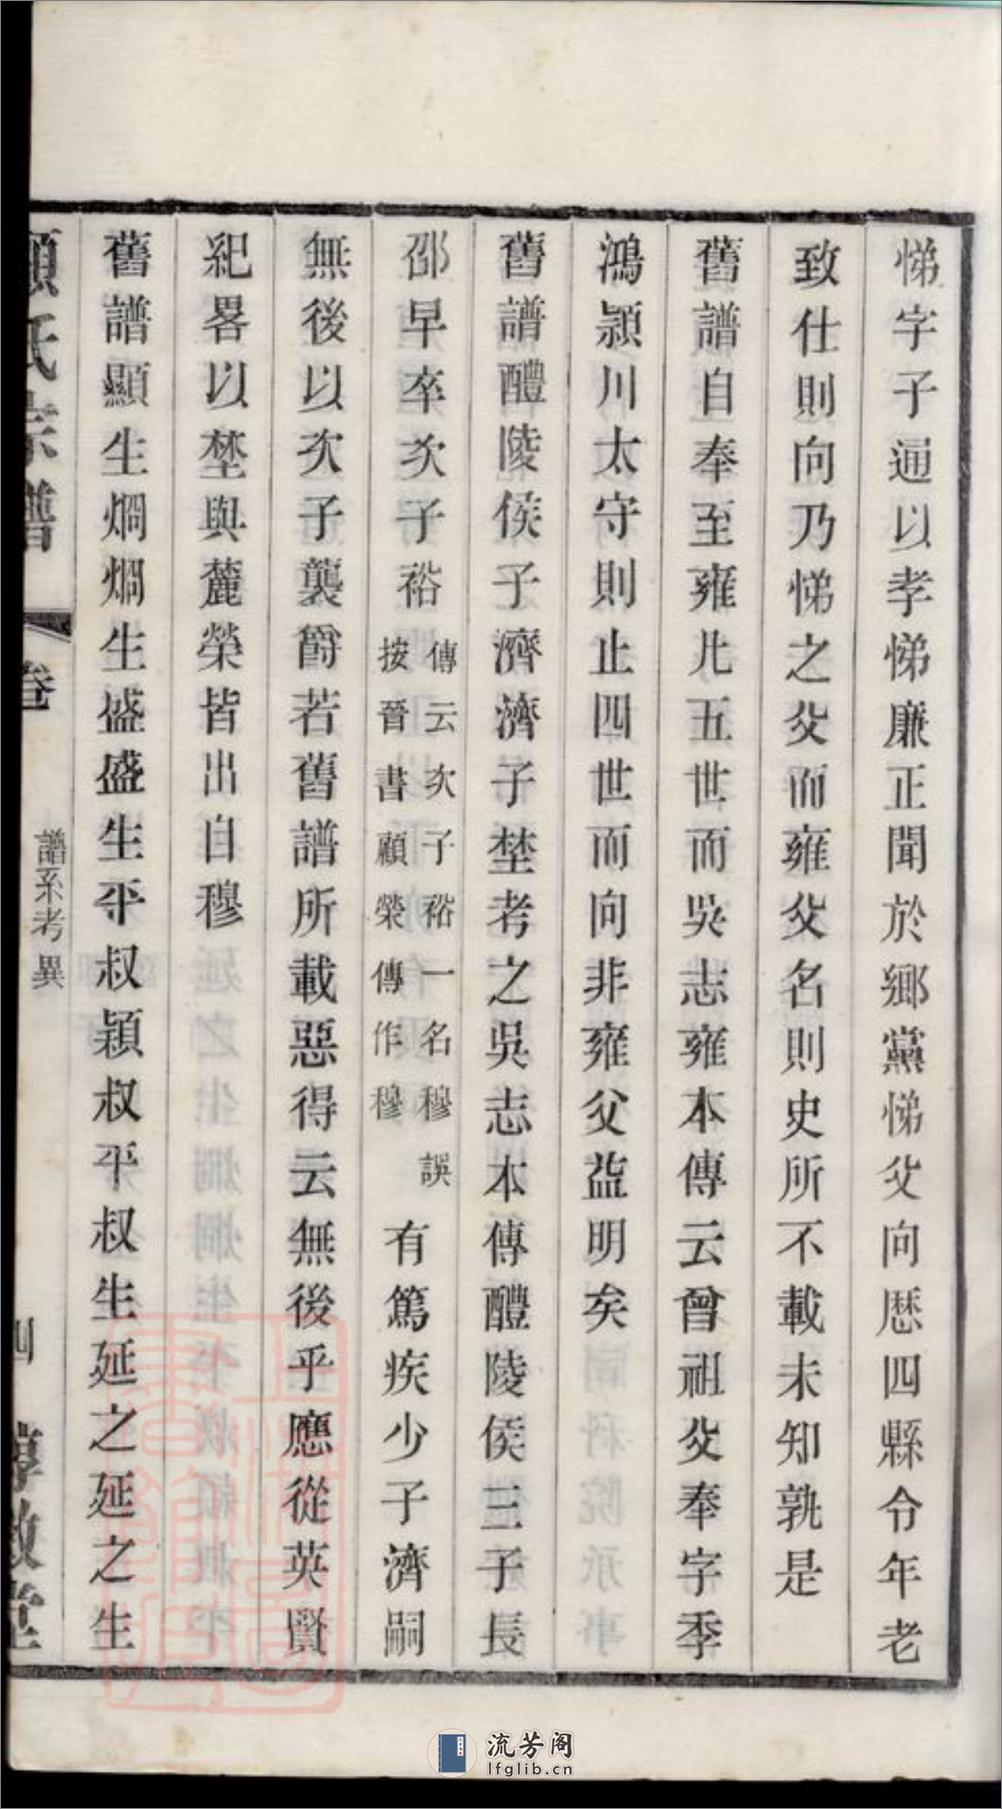 悌字子通以孝悌廉正聞於鄉黨悌父向歷四縣令年老
致仕則向乃悌之父而雍父名則史所不載未知孰是
舊譜自奉至雍凡五世而吳志雍本傳云曾祖父奉字季
鴻潁川太守則止四世而向非雍父益明矣
舊譜醴陵侯子濟濟子埜考之吳志本傳醴陵侯三子長
邵早卒次子裕傳云次子裕一名穆誤
按晉書顧榮傳作穆有篤疾少子濟嗣
無後以次子襲爵若舊譜所載惡得云無後乎應從英賢
紀畧以埜與麓榮皆出自穆
舊譜顯生烱烱生盛盛生平叔穎叔平叔生延之延之生
顧氏宗譜
卷
譜系考異
四